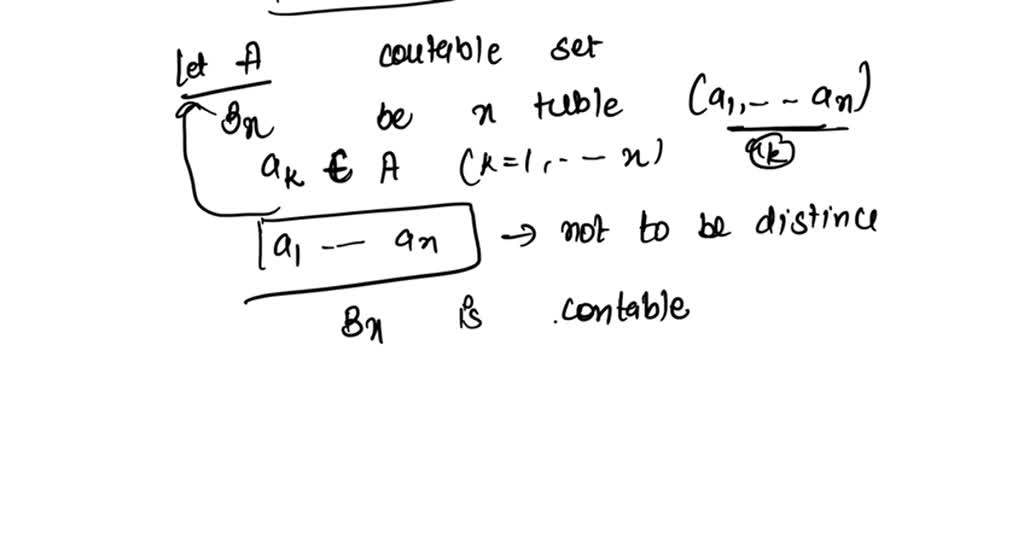 Let A coutable set
Bn be n tuble (a1, -- an)
ak ∈ A (k=1, -- n) ak
a1 -- an → not to be distince
Bn is .contable